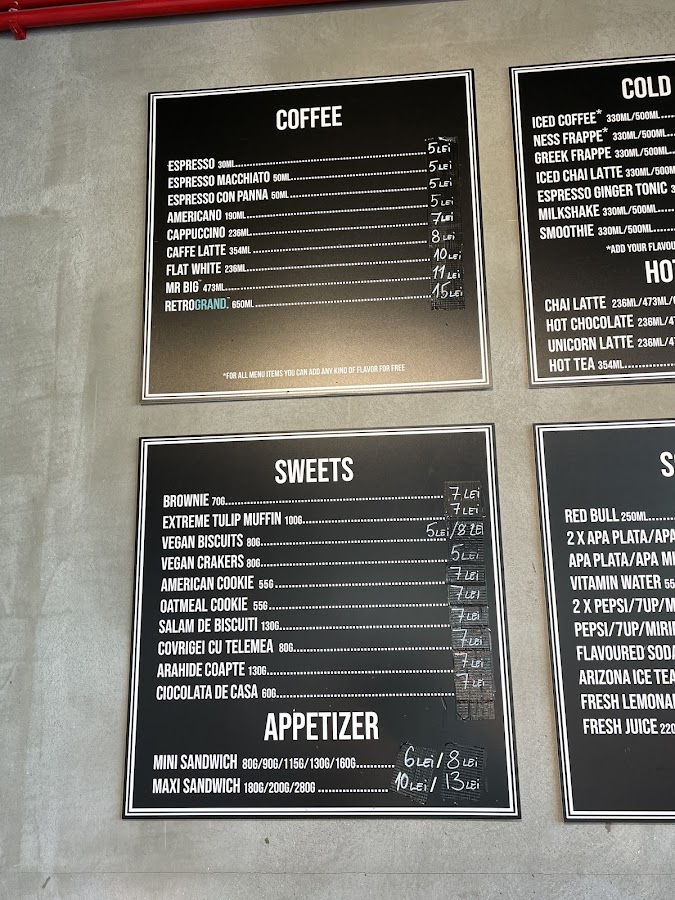 COFFEE
ESPRESSO 30ML 5 LEI
ESPRESSO MACCHIATO 50ML 5 LEI
ESPRESSO CON PANNA 50ML 5 LEI
AMERICANO 190ML 5 LEI
CAPPUCCINO 236ML 7 LEI
CAFFE LATTE 354ML 8 LEI
FLAT WHITE 236ML 10 LEI
MR BIG™ 473ML 11 LEI
RETROGRAND.™ 650ML 15 LEI
*FOR ALL MENU ITEMS YOU CAN ADD ANY KIND OF FLAVOR FOR FREE
COLD
ICED COFFEE* 330ML/500ML
NESS FRAPPE* 330ML/500ML
GREEK FRAPPE 330ML/500ML
ICED CHAI LATTE 330ML/500M
ESPRESSO GINGER TONIC
MILKSHAKE 330ML/500ML
SMOOTHIE 330ML/500ML
*ADD YOUR FLAVOU
HOT
CHAI LATTE 236ML/473ML/
HOT CHOCOLATE 236ML/4
UNICORN LATTE 236ML/4
HOT TEA 354ML
SWEETS
BROWNIE 70G 7 LEI
EXTREME TULIP MUFFIN 100G 7 LEI
VEGAN BISCUITS 80G 5 LEI/8 LEI
VEGAN CRAKERS 80G 5 LEI
AMERICAN COOKIE 55G 7 LEI
OATMEAL COOKIE 55G 7 LEI
SALAM DE BISCUITI 130G 7 LEI
COVRIGEI CU TELEMEA 80G 7 LEI
ARAHIDE COAPTE 130G 7 LEI
CIOCOLATA DE CASA 60G 7 LEI
APPETIZER
MINI SANDWICH 80G/90G/115G/130G/160G 6 LEI/8 LEI
MAXI SANDWICH 180G/200G/280G 10 LEI/13 LEI
RED BULL 250ML
2 X APA PLATA/APA
APA PLATA/APA MI
VITAMIN WATER
2 X PEPSI/7UP/M
PEPSI/7UP/MIRI
FLAVOURED SODA
ARIZONA ICE TEA
FRESH LEMONA
FRESH JUICE 220